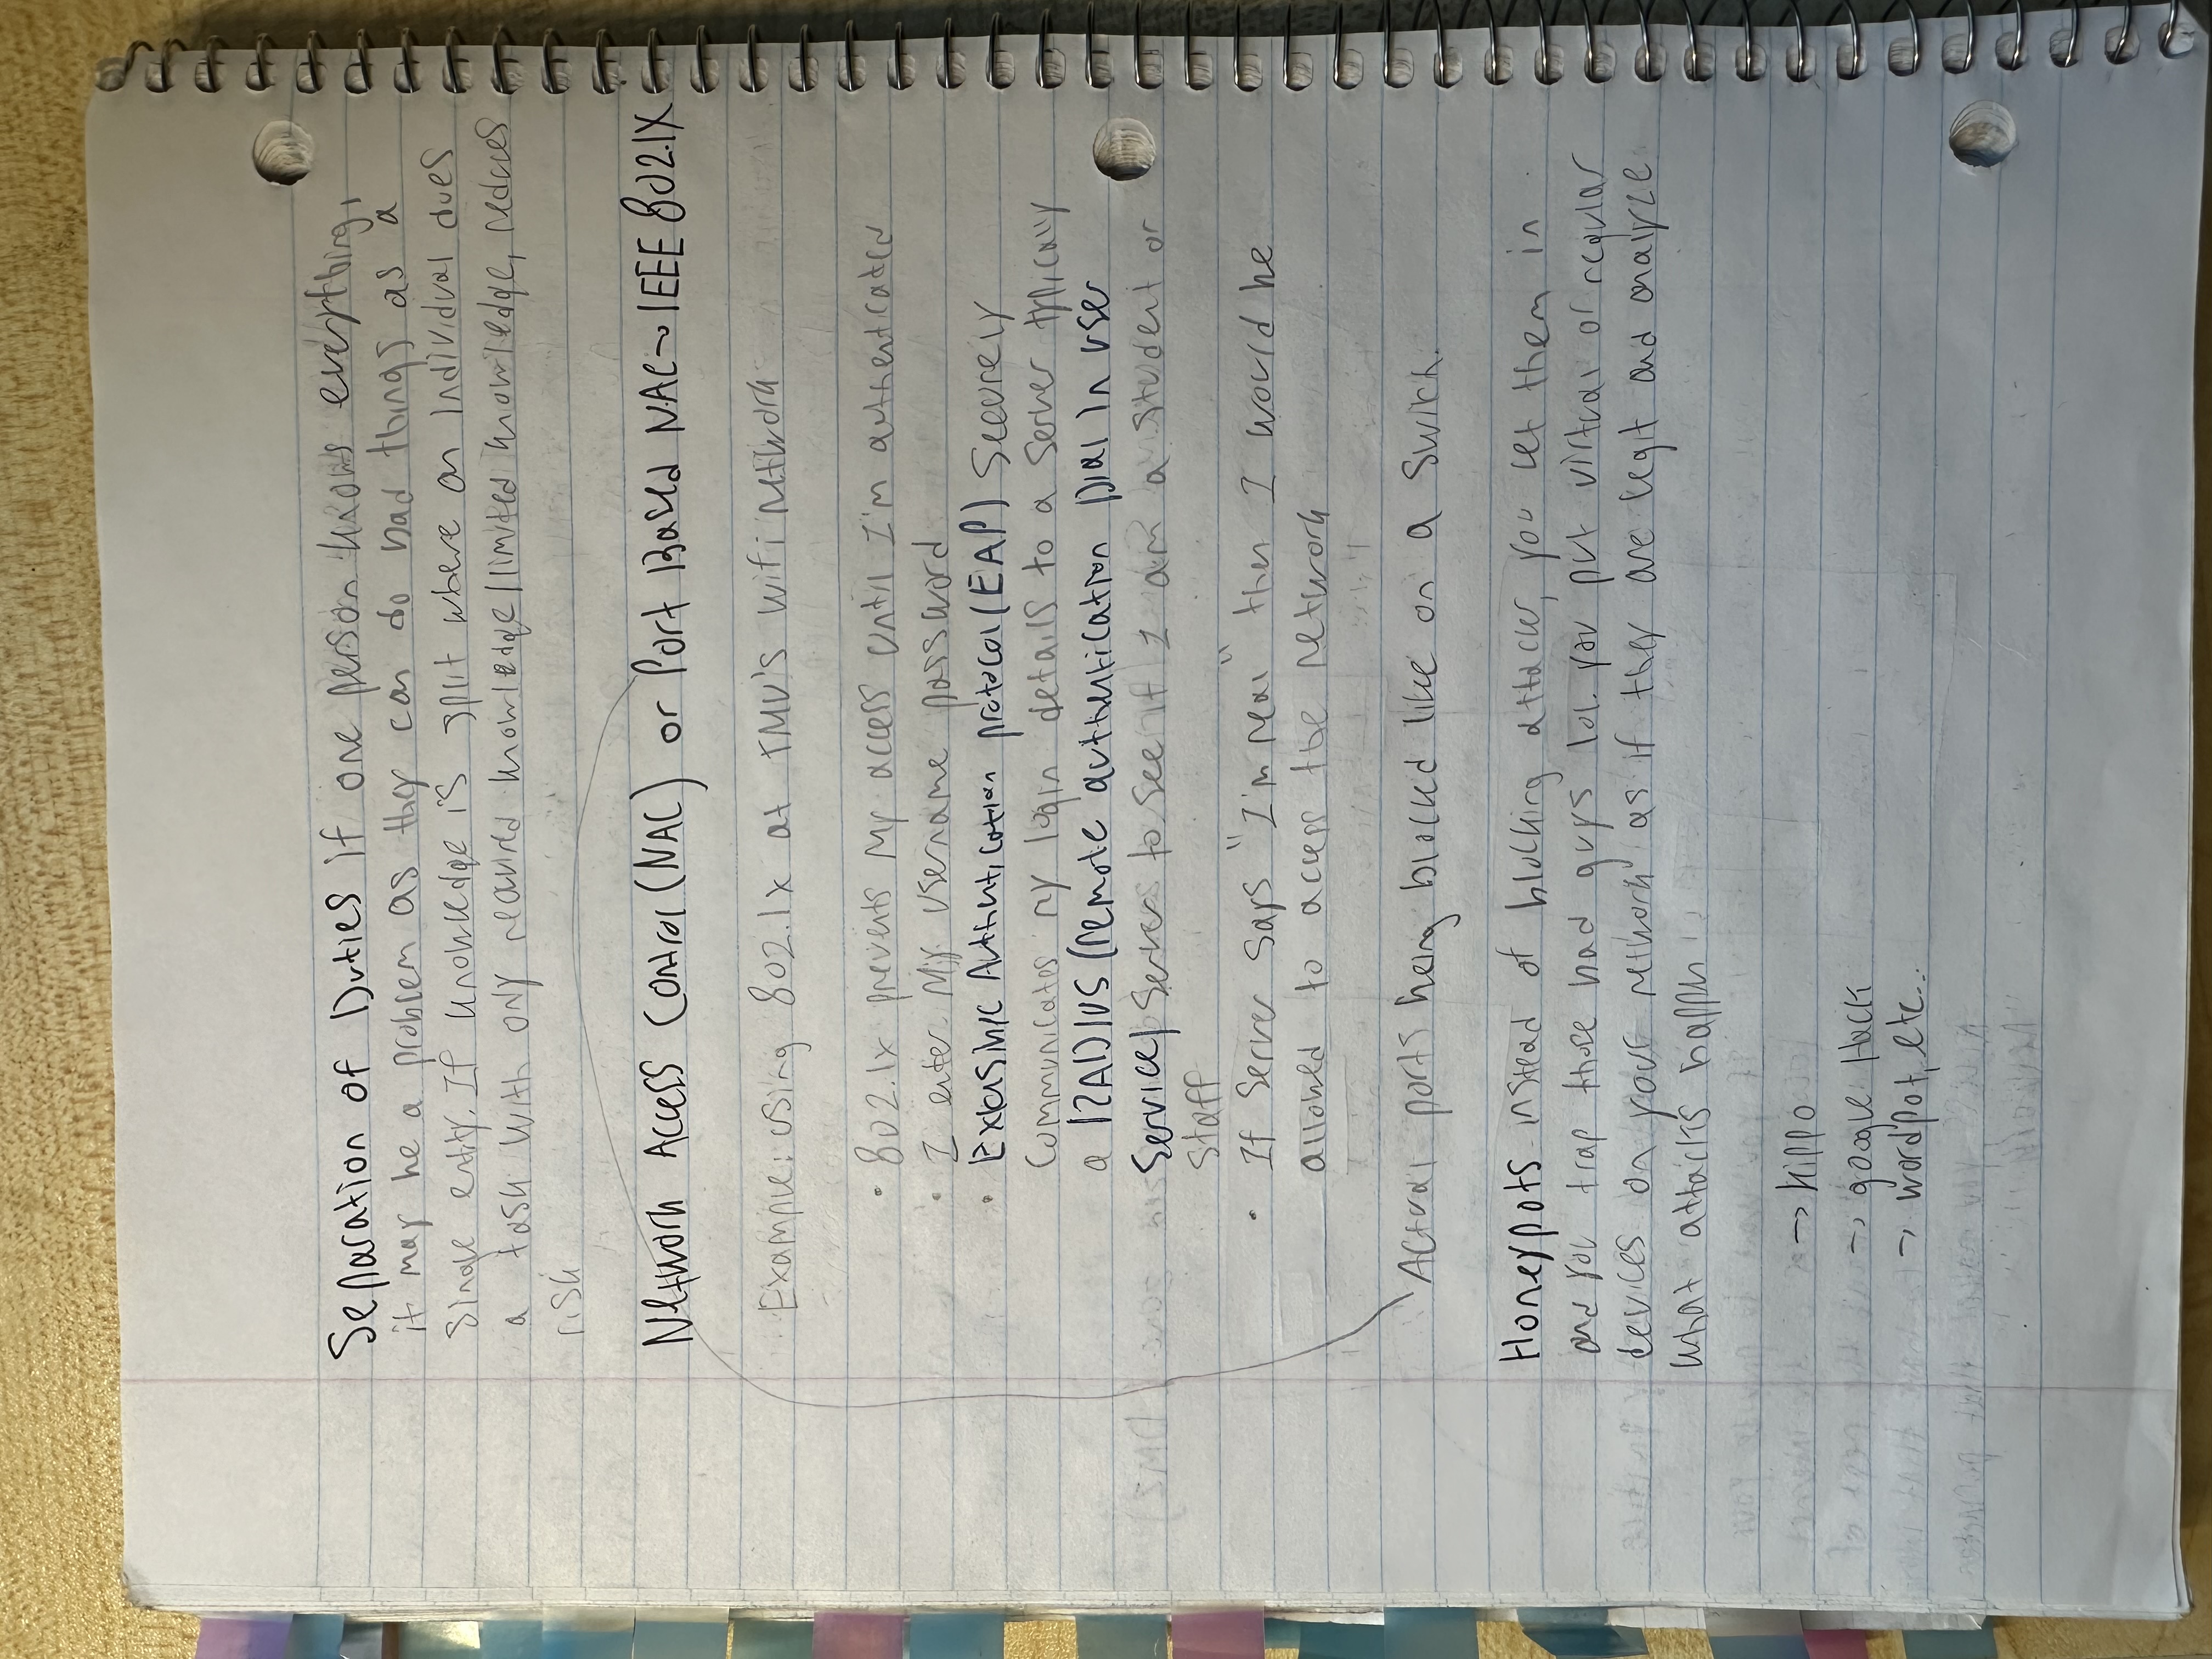 Separation of Duties if one person knows everything,
it may be a problem as they can do bad things as a
single entity. If knowledge is split where an individual does
a task with only required knowledge/limited knowledge, reduces
risk
Network Access Control (NAC) or Port Based NAC → IEEE 802.1X
Example: using 802.1x at TMU's wifi network
• 802.1x prevents my access until I'm authenticated
• I enter my username password
• Extensible Authentication protocol (EAP) Securely
communicates my login details to a server typically
a RADIUS (remote authentication Dial in user
service) server to see if I am a student or
staff
• If server says "I'm real" then I would be
allowed to access the network
Actual ports being blocked like on a switch.
Honeypots instead of blocking attacker, you let them in
and you trap those bad guys lol. you put virtual or regular
devices on your network as if they are legit and analyze
what attacks happen
→ kippo
→ google Hack
→ wordpot, etc...